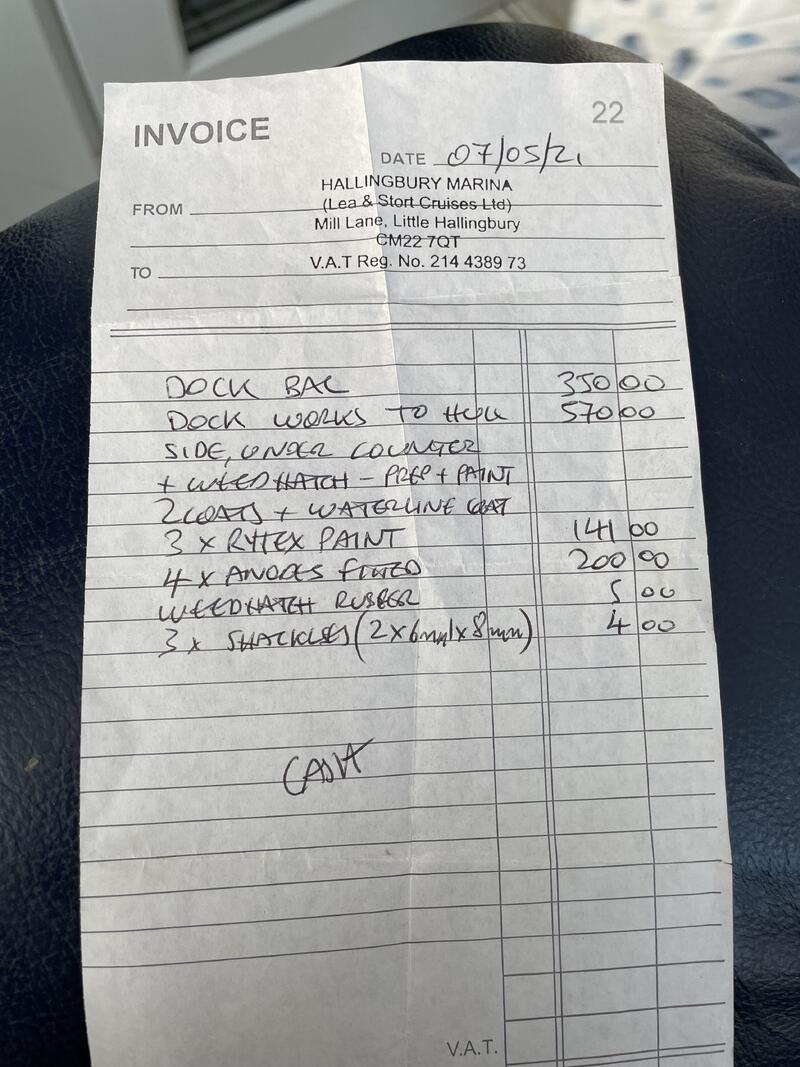 22
INVOICE
DATE 07/05/21
HALLINGBURY MARINA
FROM (Lea & Stort Cruises Ltd)
Mill Lane, Little Hallingbury
CM22 7QT
TO V.A.T Reg. No. 214 4389 73
DOCK BAL 350 00
DOCK WORKS TO HULL 570 00
SIDE, UNDER COUNTER
+ WEEDHATCH - PREP + PAINT
2 COATS + WATERLINE COAT
3 x RYTEX PAINT 141 00
4 x ANODES FITTED 200 00
WEEDHATCH RUBBER 5 00
3 x SHACKLES (2x6mm 1x8mm) 4 00
CASH
V.A.T.